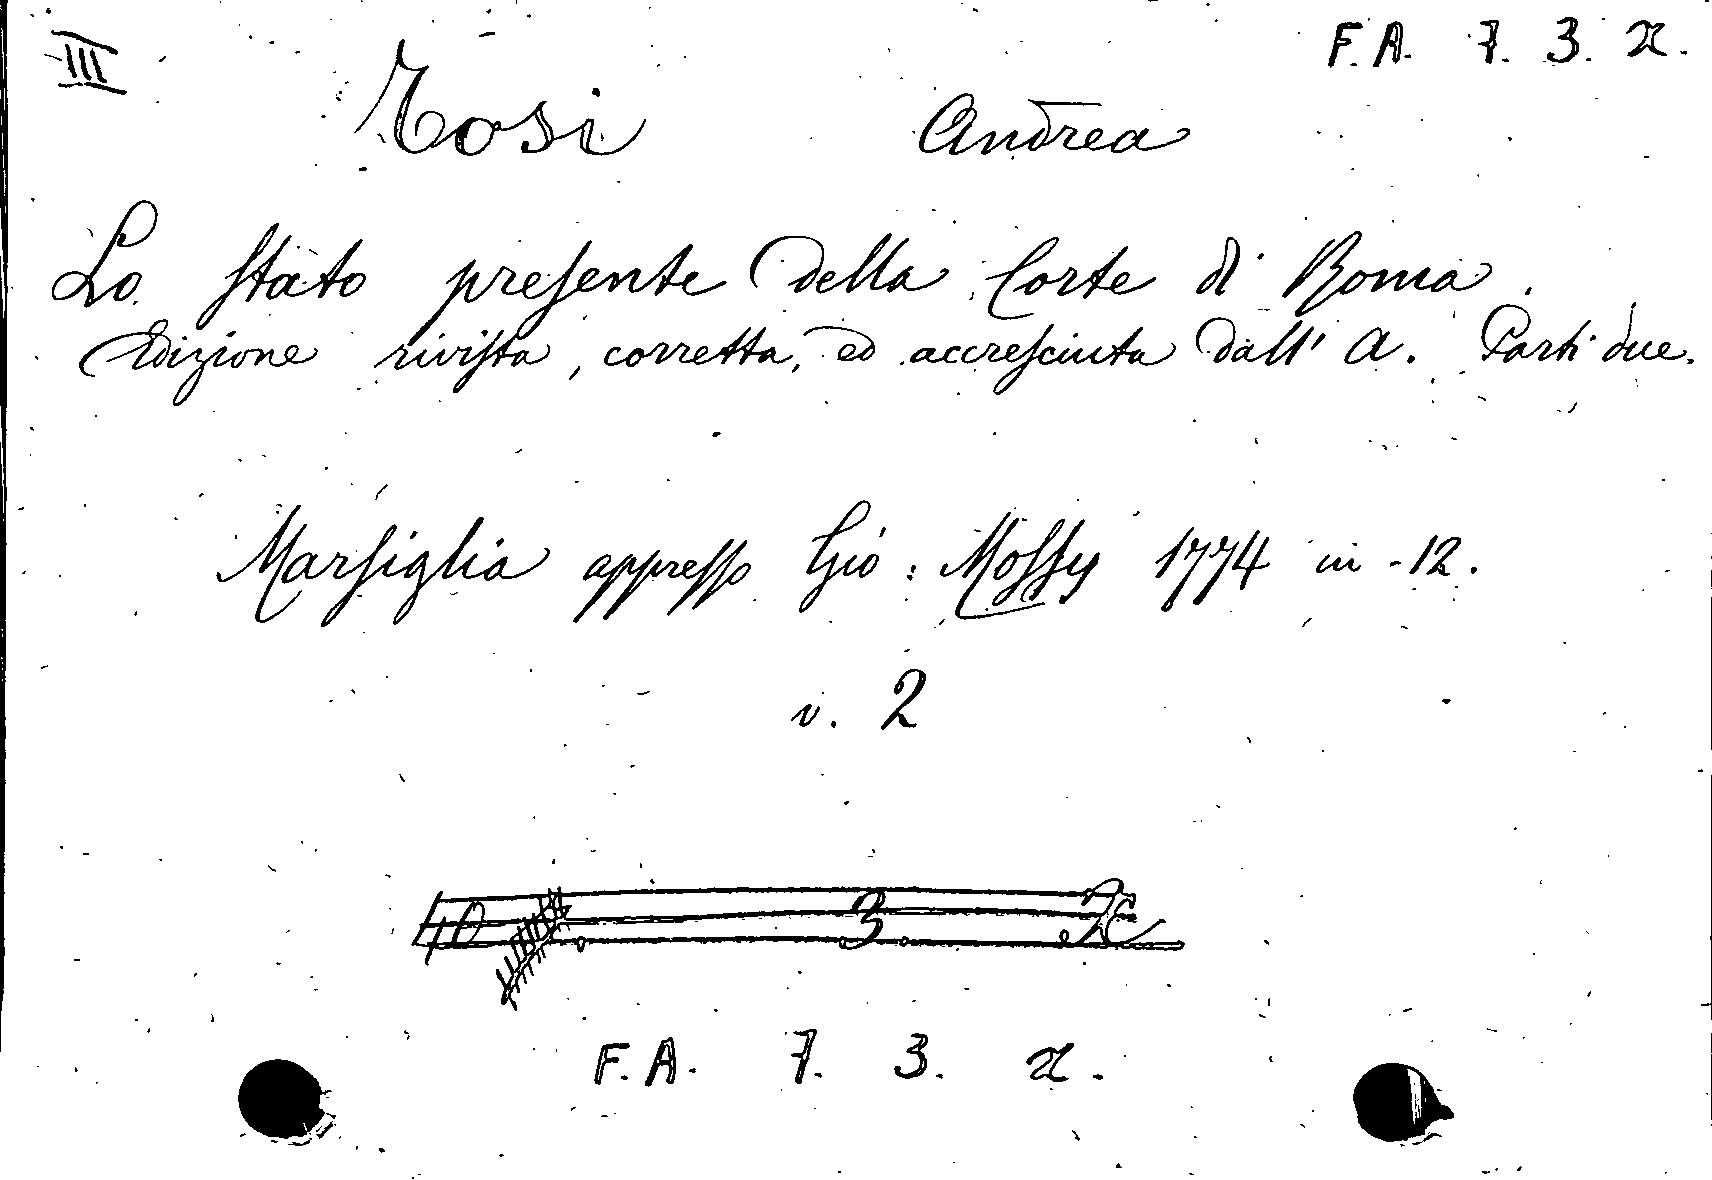 III
F.A. 7. 3. x.
Tosi Andrea
Lo Stato presente della Corte di Roma.
Edizione rivista, corretta, ed accresciuta dall' A. Parti due.
Marsiglia appresso Giò: Mossy 1774 in-12.
v. 2
10 . 3 .
F.A. 7. 3. x.